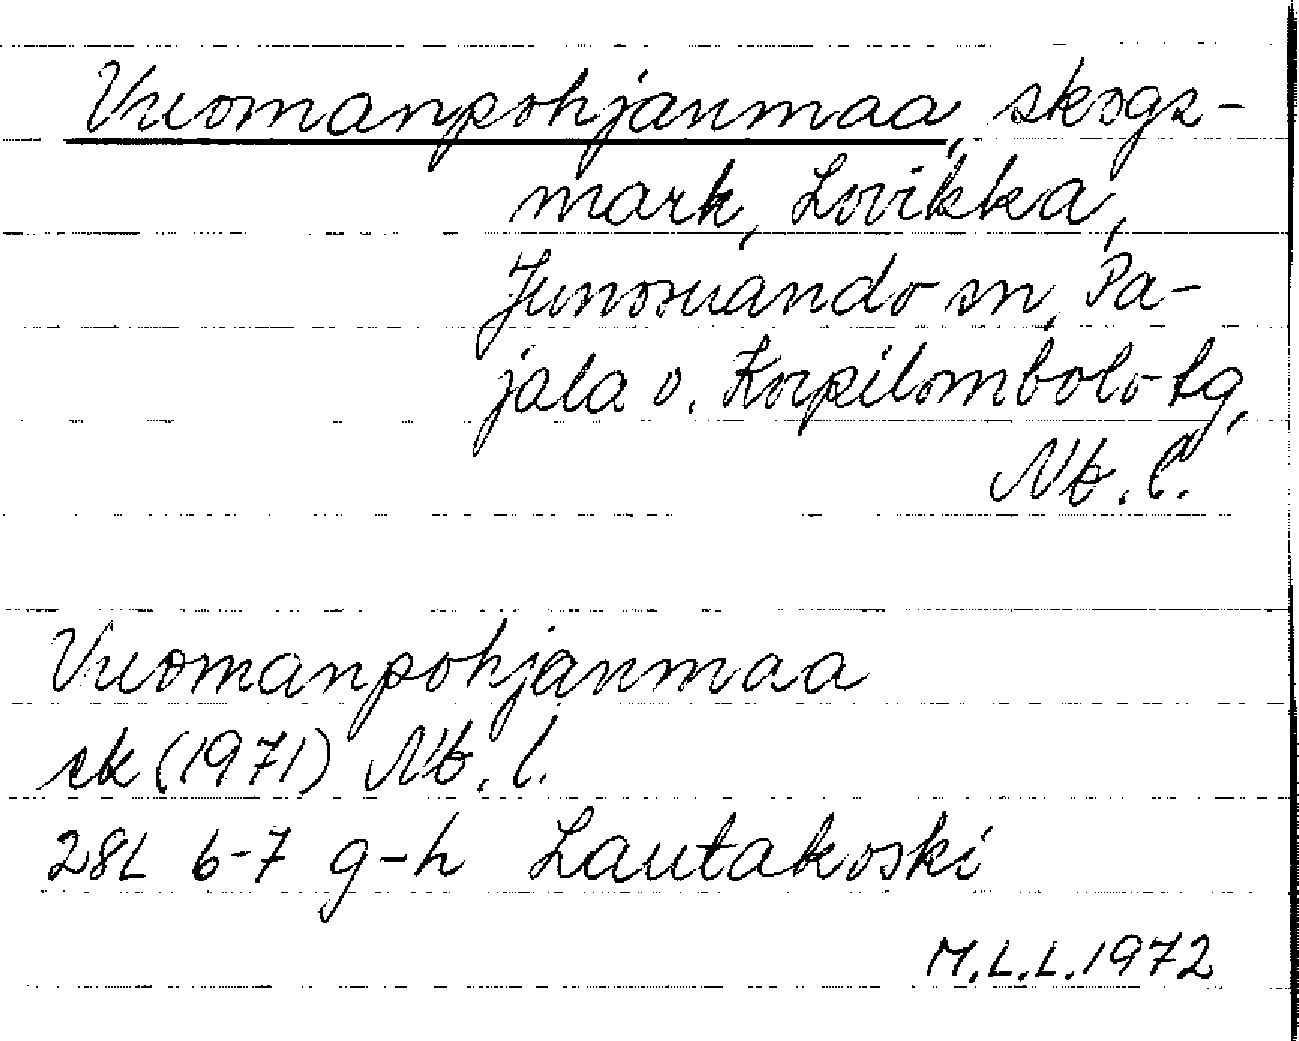 Vuomanpohjanmaa, skogs-
mark, Lovikka,
Junosuando sn, Pa-
jala o. Korpilombolo tg,
Nb. l.
Vuomanpohjanmaa
ek (1971) Nb. l.
28L 6-7 g-h Lautakoski
M.L.L. 1972